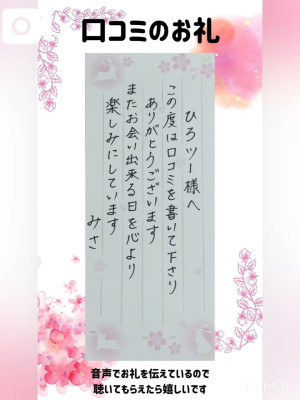 口コミのお礼
ひろツー様へ
この度は口コミを書いて下さり
ありがとうございます
またお会い出来る日を心より
楽しみにしています
みさ
音声でお礼を伝えているので
聴いてもらえたら嬉しいです